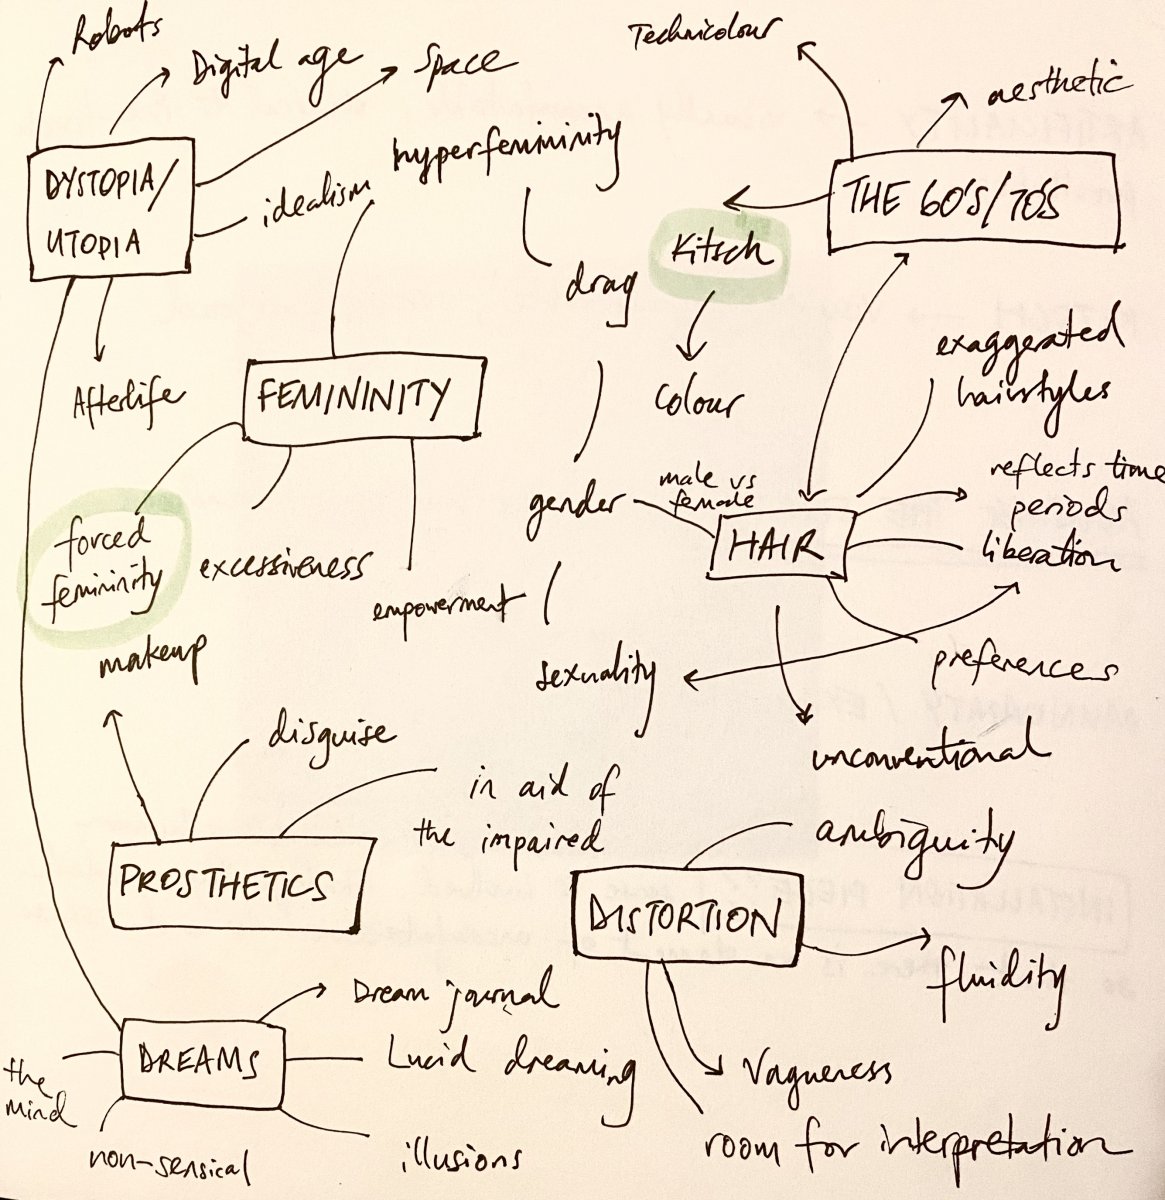 Robots
Digital age
Space
Technicolour
aesthetic
hyperfemininity
DYSTOPIA/
UTOPIA
idealism
THE 60'S/70'S
Kitsch
drag
exaggerated
hairstyles
Afterlife
FEMININITY
colour
reflects time
periods
gender
male vs
female
HAIR
liberation
forced
femininity
excessiveness
empowerment
makeup
sexuality
preferences
disguise
unconventional
in aid of
the impaired
ambiguity
PROSTHETICS
DISTORTION
fluidity
Dream journal
DREAMS
Lucid dreaming
the
mind
Vagueness
non-sensical
illusions
room for interpretation